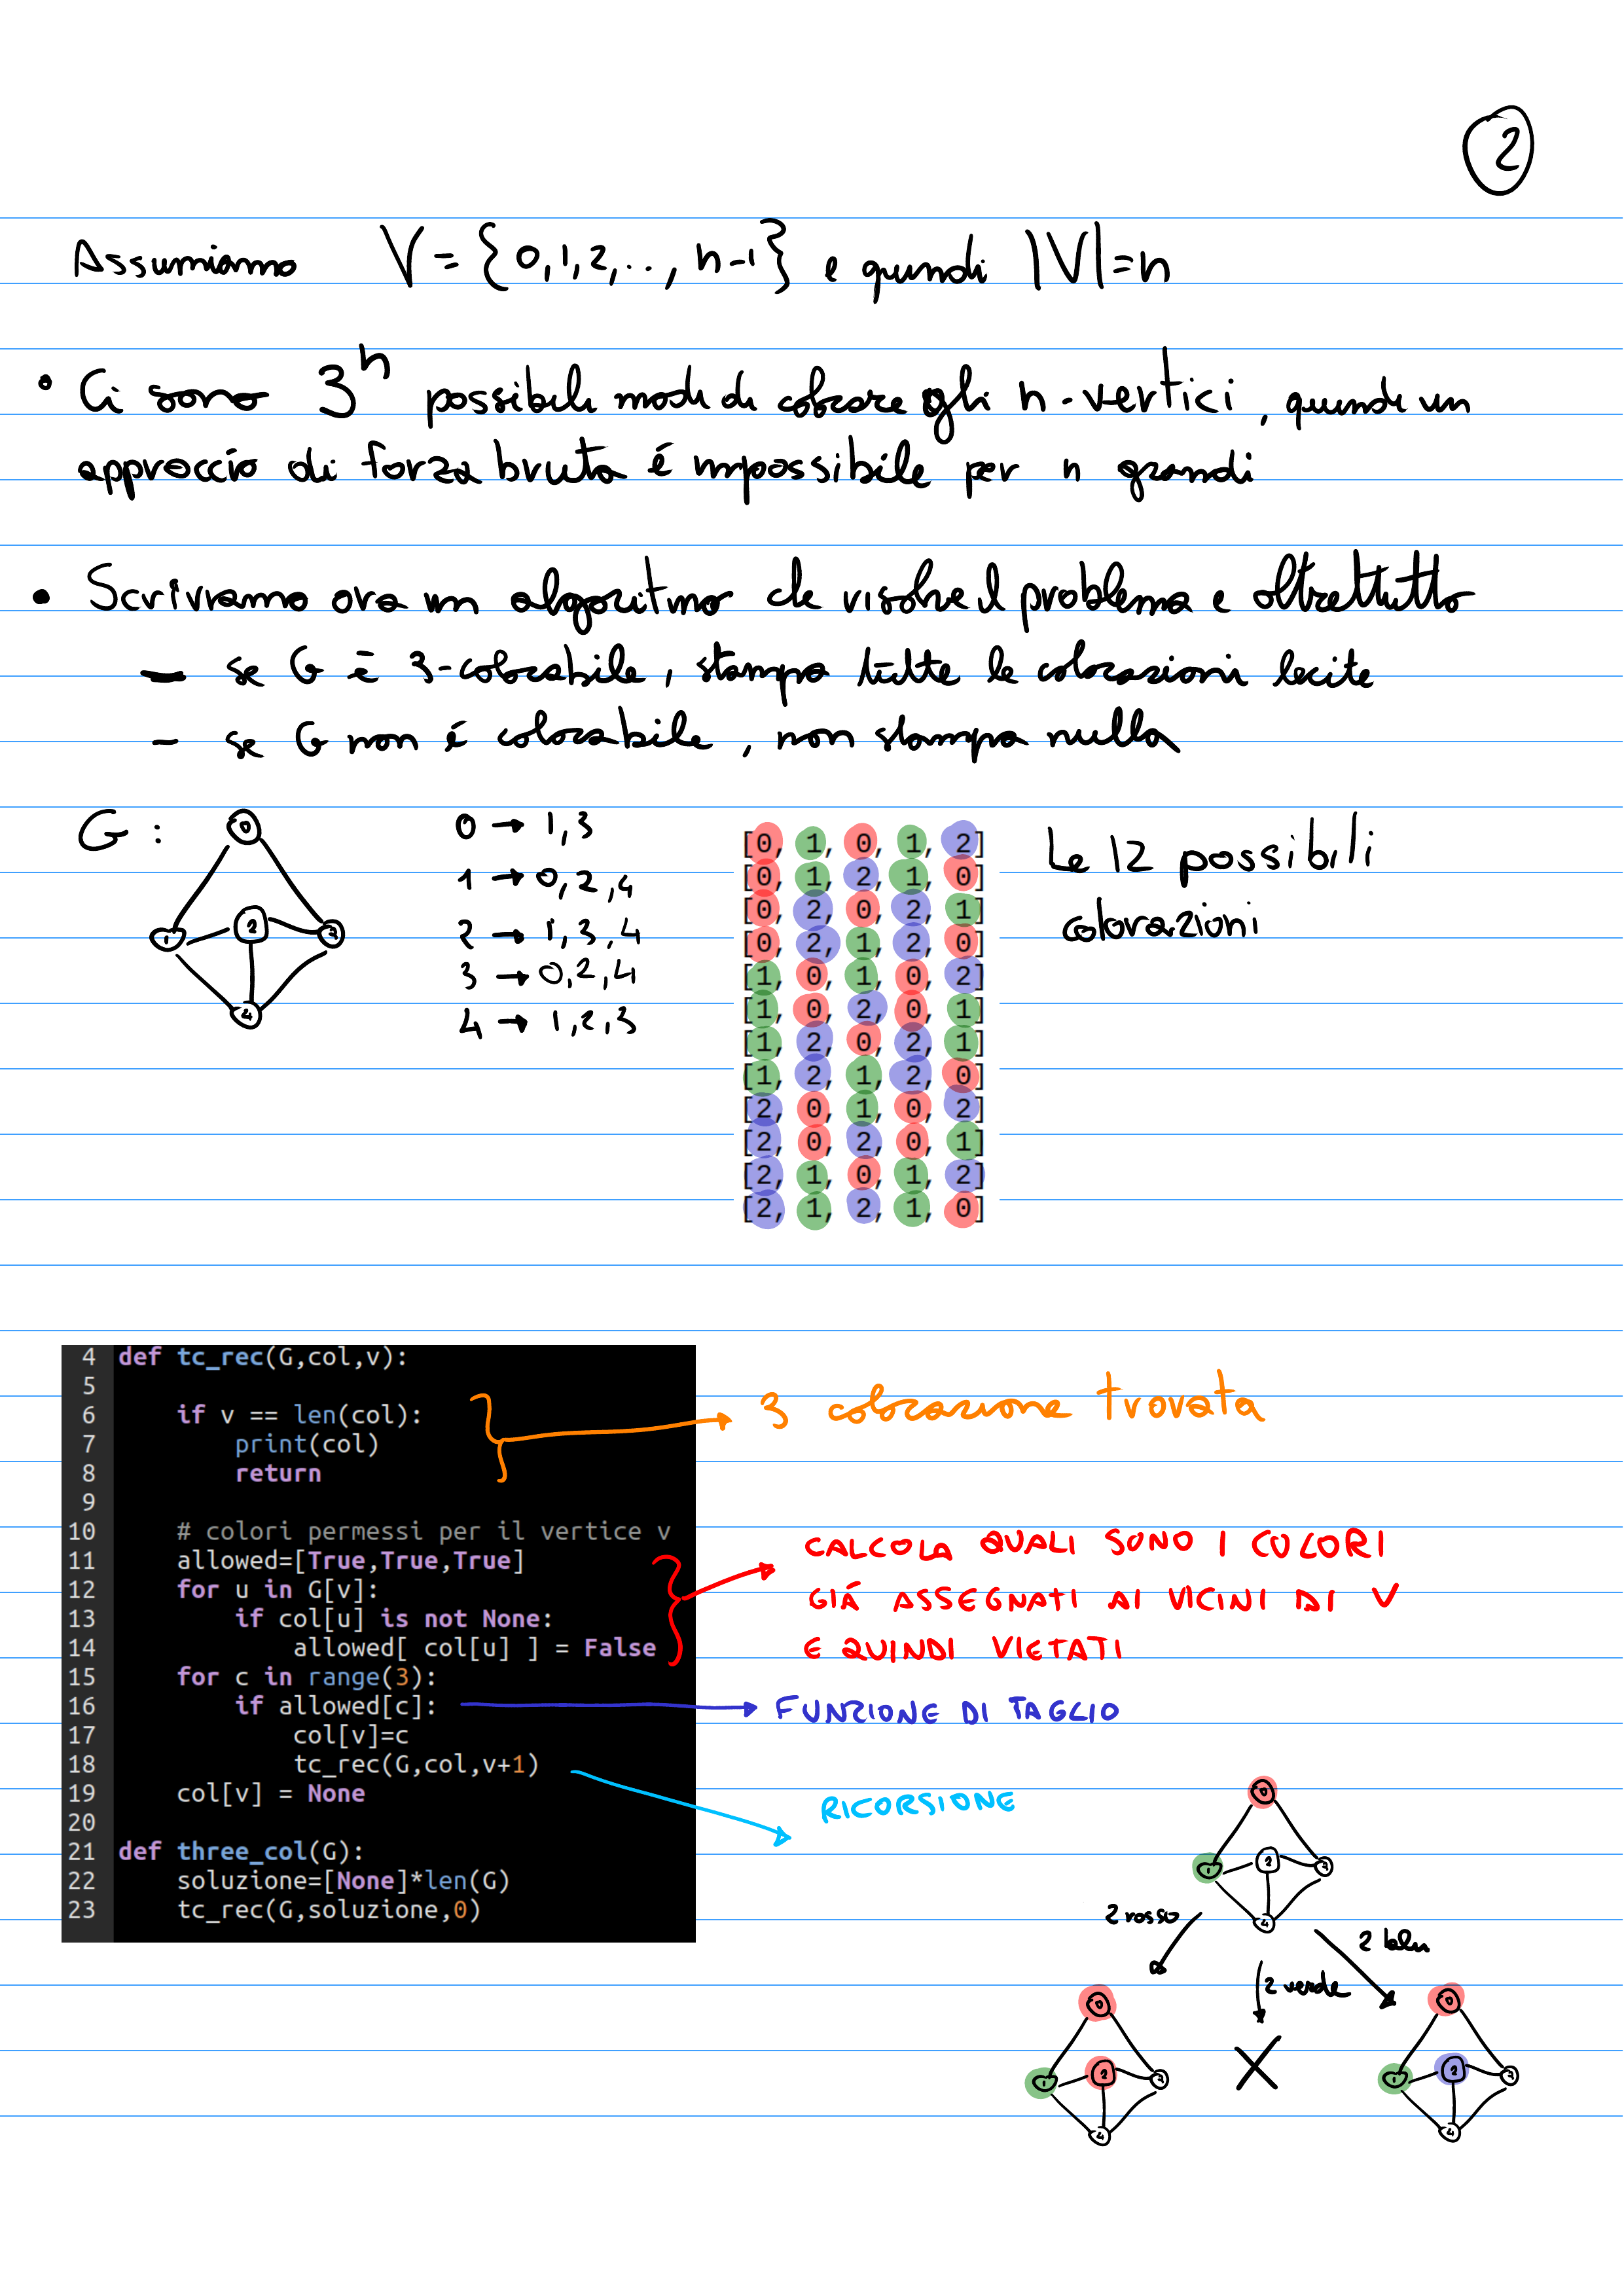 2
Assumiamo V = {0,1,2,..,n-1} e quindi |V|=n
• Ci sono 3^n possibili modi di colorare gli n-vertici, quindi un
approccio di forza bruta é impossibile per n grandi
• Scriviamo ora un algoritmo che risolve il problema e oltretutto
- se G è 3-colorabile, stampa tutte le colorazioni lecite
- se G non é colorabile, non stampa nulla
G :
0
1 2 3
4
0 → 1,3
1 → 0,2,4
2 → 1,3,4
3 → 0,2,4
4 → 1,2,3
[0, 1, 0, 1, 2]
[0, 1, 2, 1, 0]
[0, 2, 0, 2, 1]
[0, 2, 1, 2, 0]
[1, 0, 1, 0, 2]
[1, 0, 2, 0, 1]
[1, 2, 0, 2, 1]
[1, 2, 1, 2, 0]
[2, 0, 1, 0, 2]
[2, 0, 2, 0, 1]
[2, 1, 0, 1, 2]
[2, 1, 2, 1, 0]
Le 12 possibili
colorazioni
4 def tc_rec(G,col,v):
5
6 if v == len(col):
7 print(col)
8 return
9
10 # colori permessi per il vertice v
11 allowed=[True,True,True]
12 for u in G[v]:
13 if col[u] is not None:
14 allowed[ col[u] ] = False
15 for c in range(3):
16 if allowed[c]:
17 col[v]=c
18 tc_rec(G,col,v+1)
19 col[v] = None
20
21 def three_col(G):
22 soluzione=[None]*len(G)
23 tc_rec(G,soluzione,0)
3 colorazione trovata
CALCOLA QUALI SONO I COLORI
GIÁ ASSEGNATI AI VICINI DI V
E QUINDI VIETATI
FUNZIONE DI TAGLIO
RICORSIONE
0
1 2 3
4
2 rosso
2 verde
2 blu
0
1 2 3
4
0
1 2 3
4